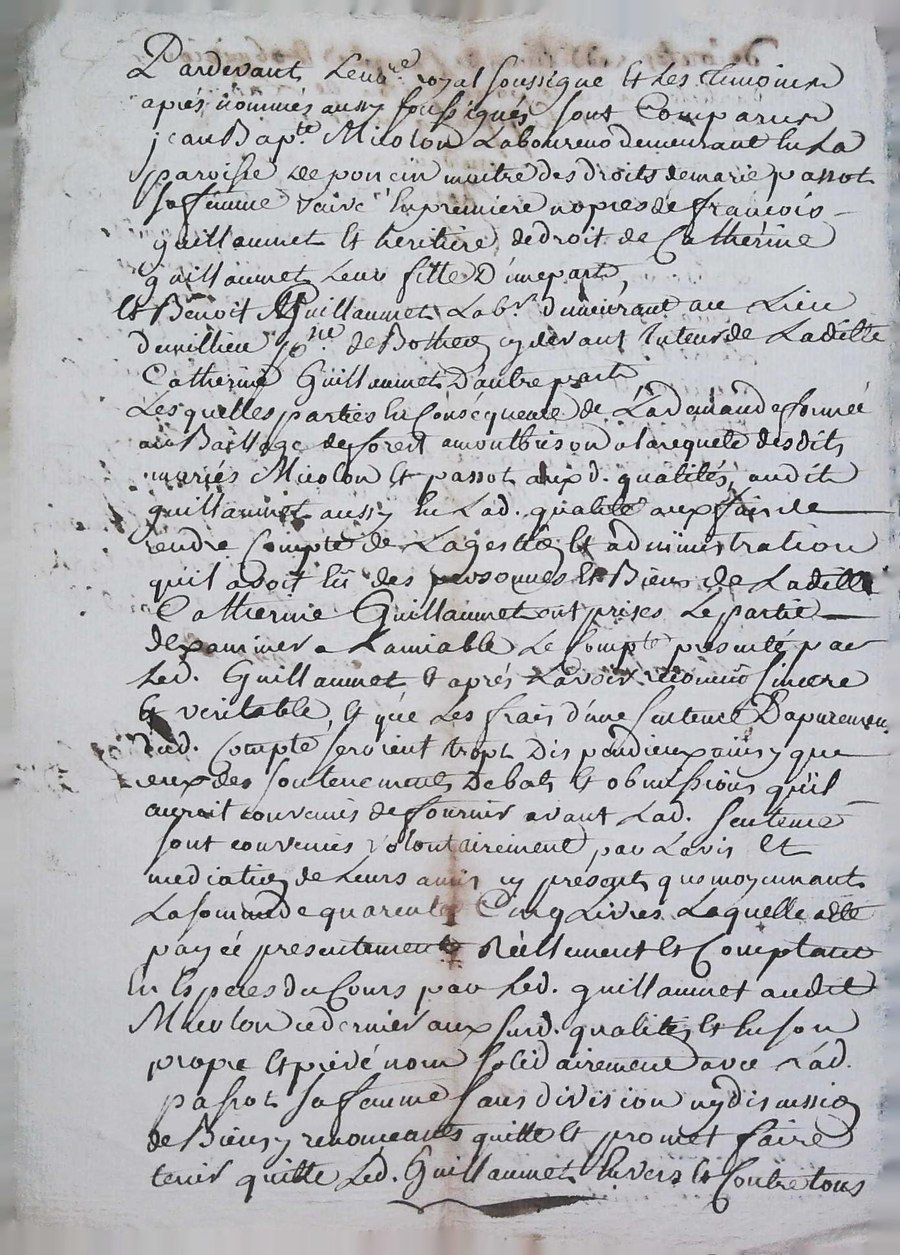 Pardevant Le no.re royal soussigné Et Les témoins
aprés nommés aussy soussignés sont Comparus
jean Bap.te Micolon Laboureur demeurant En La
paroisse de poncin maitre des droits de marie passot
sa femme vaive En premiere nopces de françois
guillaumet Et heritiere de droit de Catherine
guillaumet Leur fille D'une part,
Et Benoit Guillaumet Lab.r demeurant au Lieu
de millieu de Botheo cy devant tuteur de Laditte
Catherine Guillaumet D'autre part
Lesquelles parties En Conséquence de La demande formée
au Baillage de forest a montbrison a la requete desdits
mariés Micolon Et passot aux d. qualités, audit
guillaumet aussy En Lad. qualité aux fins de
rendre Compte de La gestion Et administration
qu'il avoit Eü des personnes Et Biens de Laditte
Catherine Guillaumet ont prises Le partie
d'examiner a L'amiable Le Compte presenté par
Led. Guillaumet Et aprés L'avoir reconnu sincere
Et veritable, Et que Les frais d'une sentence D'apurement
dud. Compte seroient tropt Dispendieux ainsy que
ceux des soutenements Debats Et obmissions qu'il
auroit convenus de fournir avant Lad. sentence
sont convenues volontairement par L'avis Et
mediation de Leurs amis cy presents que moyennant
La somme de quarente Cinq Livres Laquelle a Eté
payée presentement Réellement Et Comptant
En Especes du Cours par Led. guillaumet audit
Micolon ce dernier aux susd. qualités Et En son
propre Et privé nom solidairement avec Lad.
passot sa femme sans division ny discussion
de Biens y renonceants quitte Et promet faire
tenir quitte Led. Guillaumet Envers Et Contre tous